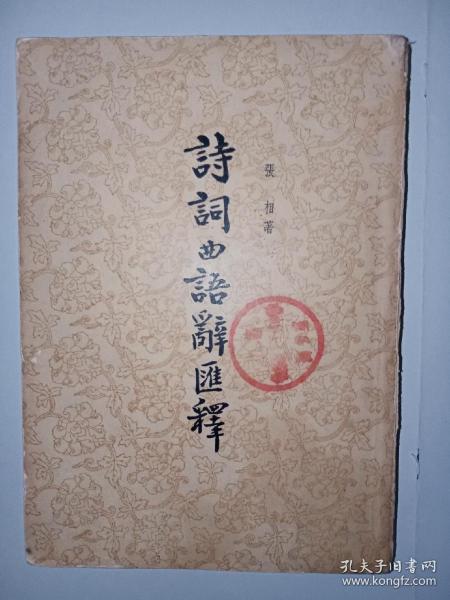 張相著
詩詞曲語辭匯釋
孔夫子旧书网
www.kongfz.com